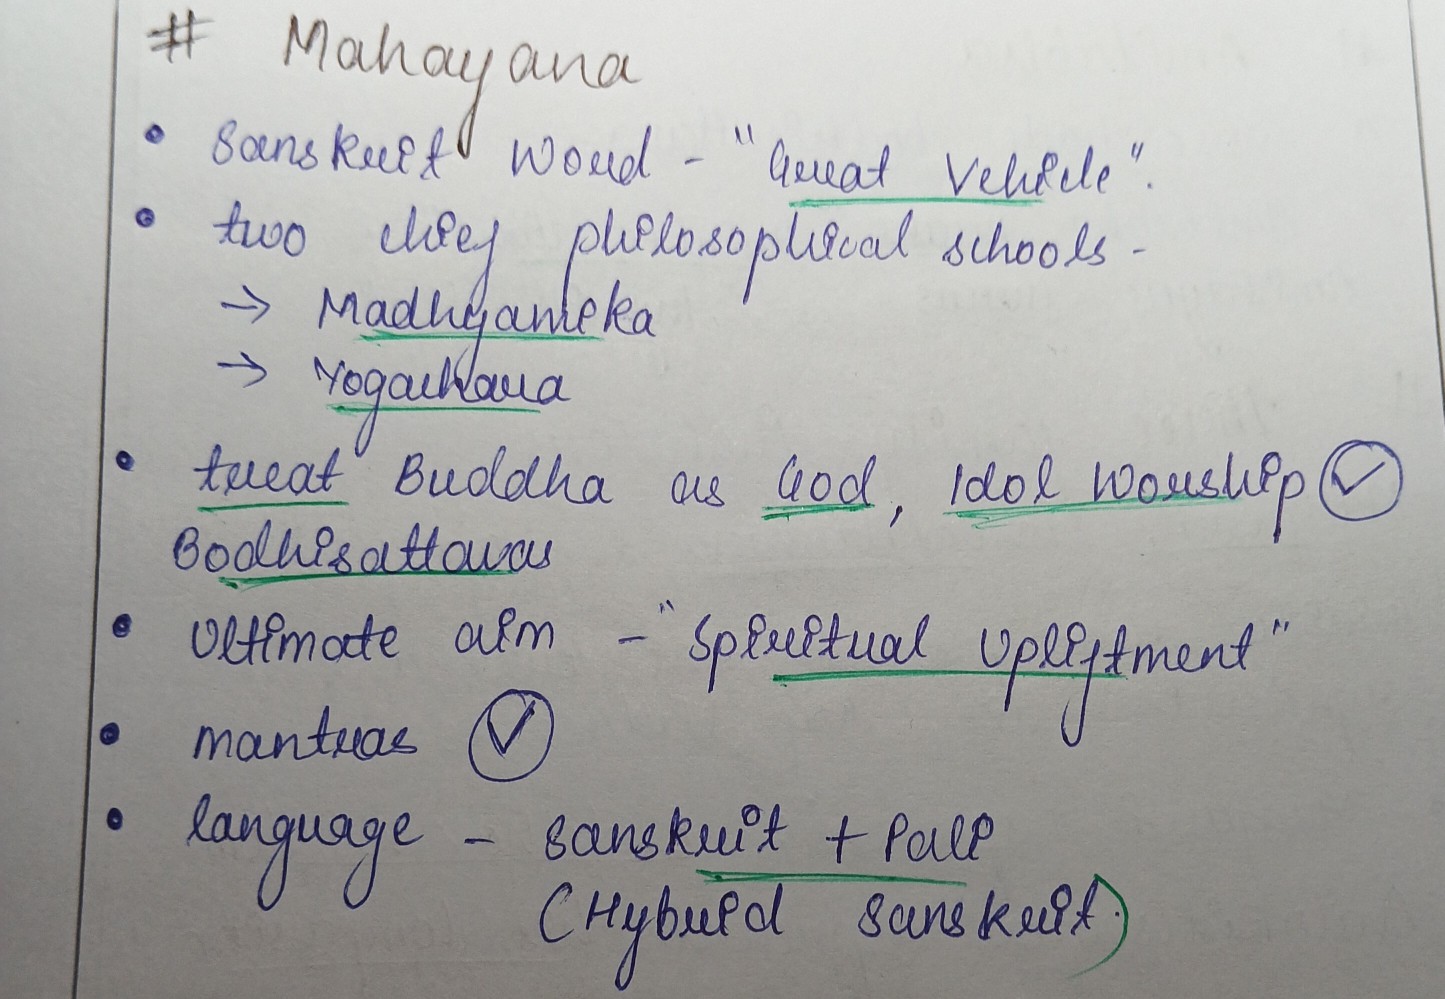 # Mahayana
• Sanskrit Word - "Great Vehicle".
• two chief philosophical schools -
→ Madhyamika
→ Yogachara
• treat Buddha as God, Idol Worship ✓
Bodhisattavas
• Ultimate aim - "Spiritual Upliftment"
• mantras ✓
• language - Sanskrit + Pali
(Hybrid Sanskrit)